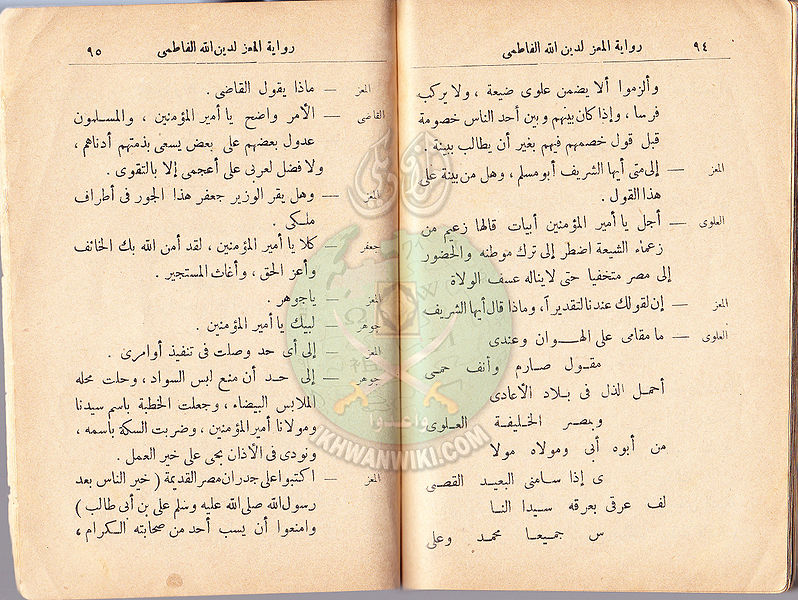 ٩٤ رواية المعز لدين الله الفاطمى
وألزموا ألا يضمن علوى ضيعة ، ولا يركب
فرسا ، وإذا كان بينهم وبين أحد الناس خصومة
قبل قول خصمهم فيهم بغير أن يطالب ببينة .
المعز — إلى متى أيها الشريف أبو مسلم ، وهل من بينة على
هذا القول .
العلوى — أجل يا أمير المؤمنين أبيات قالها زعيم من
زعماء الشيعة اضطر إلى ترك موطنه والحضور
إلى مصر متخفيا حتى لا يناله عسف الولاة
المعز — إن لقولك عندنا لتقديرآ، وماذا قال أيها الشريف
العلوى — ما مقامى على الهـوان وعندى
مقـول صـارم وأنف حمـى
أحمـل الذل فى بـلاد الأعادى
وبمصـر الخـليفـة العـلوى
من أبوه أبى ومولاه مولا
ى إذا سامنى البعيـد القصـى
لف عرقى بعرقه سـيدا النـا
س جميعـا محمد وعلى
رواية المعز لدين الله الفاطمى ٩٥
المعز — ماذا يقول القاضى .
القاضى — الأمر واضح يا أمير المؤمنين ، والمسـلمون
عدول بعضهم على بعض يسعى بذمتهم أدناهم ،
ولا فضل لعربى على أعجمى إلا بالتقوى .
المعز — وهل يقر الوزير جعفر هذا الجور فى أطراف
ملـكى .
جعفر — كلا يا أمير المؤمنين ، لقد أمن الله بك الخائف
وأعز الحق ، وأغاث المستجير .
المعز — يا جوهر .
جوهر — لبيك يا أمير المؤمنين .
المعز — إلى أى حد وصلت فى تنفيذ أوامرى .
جوهر — إلى حـد أن منع لبس السواد ، وحلت محله
الملابس البيضاء ، وجعلت الخطبة باسم سيدنا
ومولانا أمير المؤمنين ، وضربت السكة باسمه ،
ونودى فى الأذان بحى على خير العمل .
المعز — اكتبوا على جدران مصر القديمة ( خير الناس بعد
رسول الله صلى الله عليه وسلم على بن أبى طالب )
وامنعوا أن يسب أحد من صحابته الكرام ،
وأعدوا
IKHWANWIKI.COM